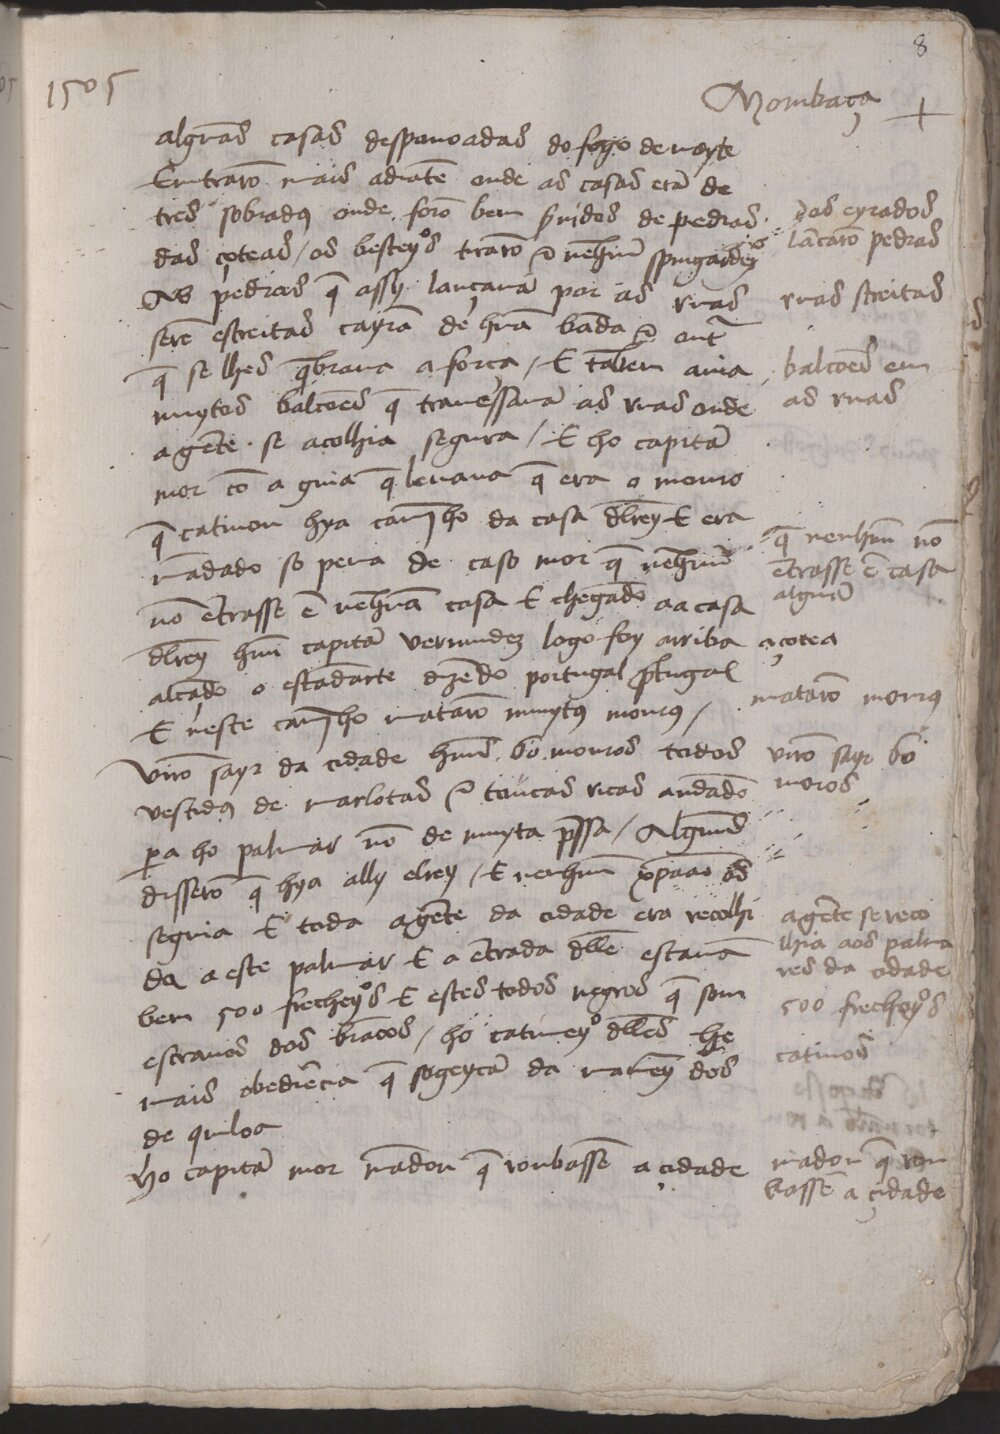 8
1505
Mombaça
algũas casas despouoadas do fogo de noyte
Emtrarõ mais adiãte onde as casas erã de
tres sobrados onde forõ bem seruidos de pedras
das çoteas / os besteyros tirarõ e nẽhũs spingardeyros
As pedras q̃ assy lançauã por as ruas
serẽ estreitas cayrã de hũa bãda e outra
q̃ se lhes q̃braua a força / E tãbem auia
muytos balcoẽs q̃ trauessauã as ruas onde
a gẽte se acolhia segura / E ho capitã
mor cõ a guia q̃ leuaua q̃ era o mouro
q̃ catiuou hya camĩho da casa delrey E era
mãdado so pena de caso mor q̃ nẽhũu
nõ ẽtrasse ẽ nẽhũa casa E chegãdo aa casa
delrey hũu capitã vermudez logo foy arriba
alçãdo o estãdarte dizẽdo portugal portugal
E neste camĩho matarõ muytos mouros /
virõ sayr da cidade hũus bõ mouros todos
vestidos de marlotas e toucas ricas andãdo
pera ho palmar nõ de muyta pressa / Algũus
disserõ q̃ hya ally elrey / E nenhum xpãao os
seguia E toda a gẽte da cidade era recolhi
da a este palmar E a ẽtrada delle estauã
bem 500 frecheyros E estes todos negros q̃ som
escrauos dos brãcos / ho catiueyro delles he
mais obediẽcia q̃ sogeyçã da maneyra dos
de quiloa
Ho capitã mor mãdou q̃ roubassẽ a çidade
das eyrados
lãcarõ pedras
ruas streitas
balcoẽs em
as ruas
q̃ nenhum nõ
ẽtrasse ẽ casa
algũa
açotea
matarõ mouros
virõ sayr bõ
moros
a gẽte se reco
lhia aos palma
res da cidade
500 frecheyros
catiuos
mãdou q̃ rou
bassẽ a çidade